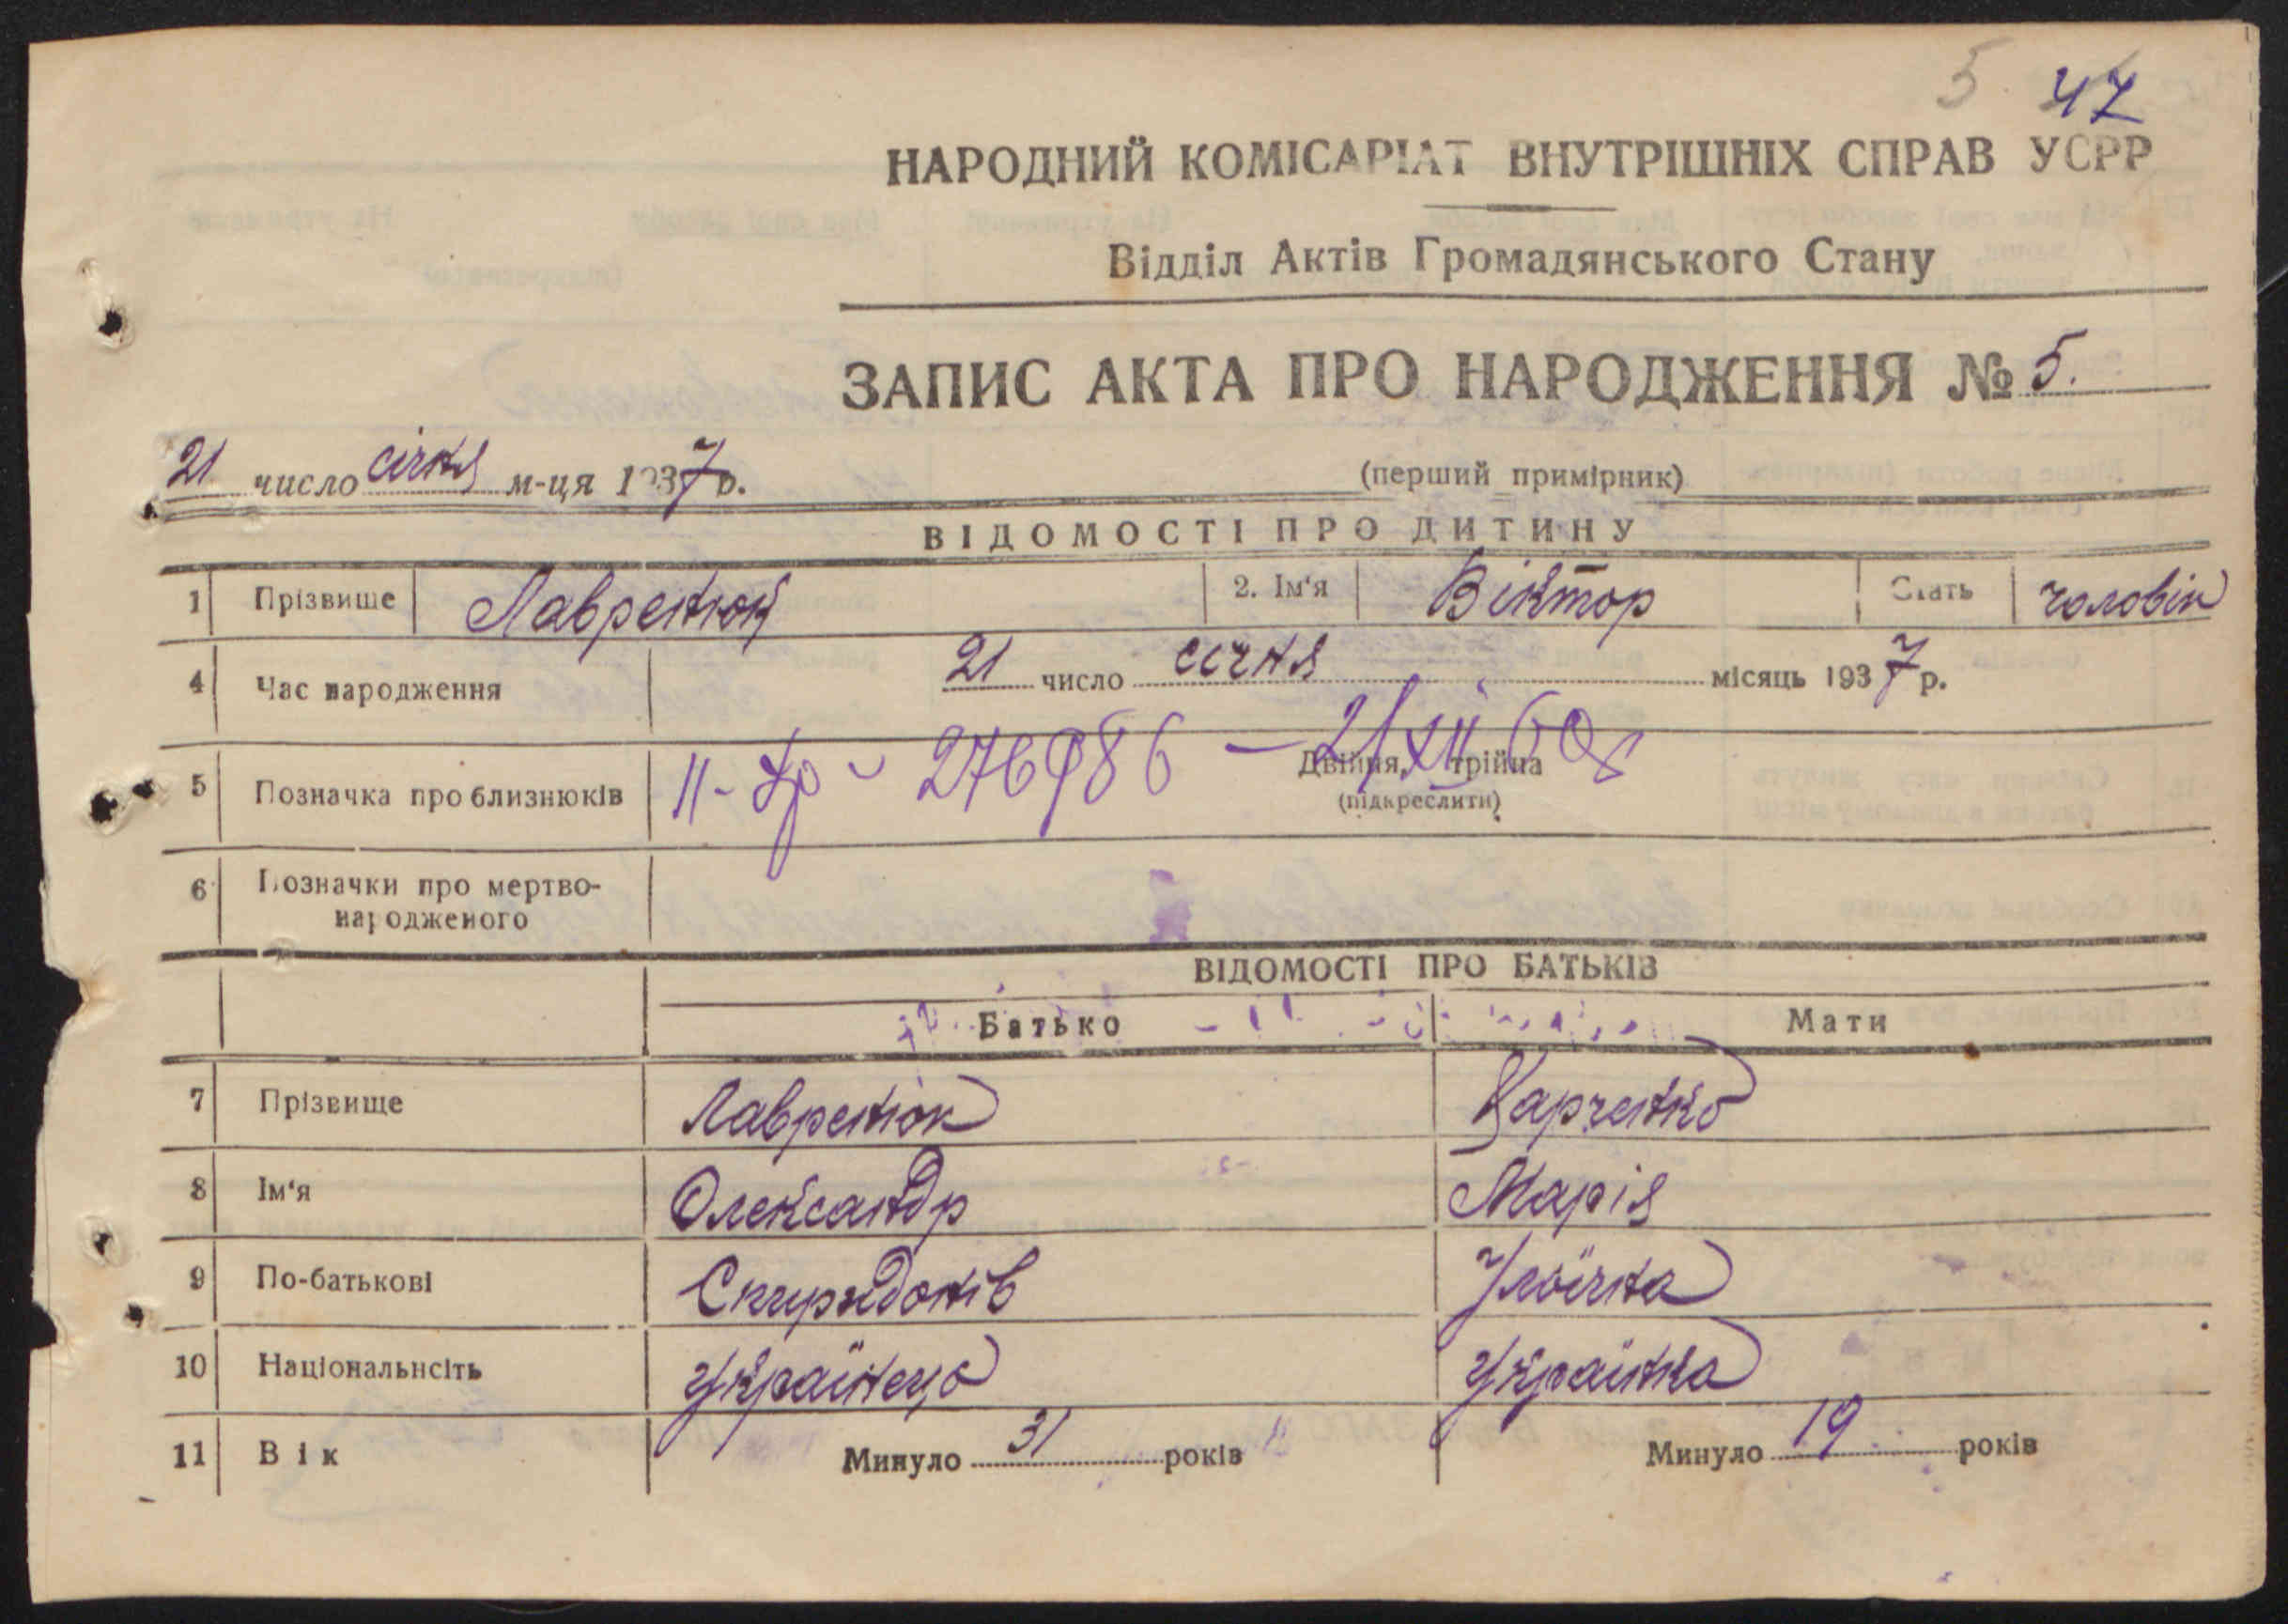 5 47
НАРОДНИЙ КОМІСАРІАТ ВНУТРІШНІХ СПРАВ УСРР
Відділ Актів Громадянського Стану
ЗАПИС АКТА ПРО НАРОДЖЕННЯ № 5.
21 число січня м-ця 1937 р.
(перший примірник)
ВІДОМОСТІ ПРО ДИТИНУ
1 Прізвище Лавренюк 2. Ім'я Віктор Стать чоловік
4 Час народження 21 число січня місяць 1937 р.
5 Позначка про близнюків Двійня, трійна
(підкреслити)
276986 – 21/XII 60
6 Позначки про мертво-
народженого
ВІДОМОСТІ ПРО БАТЬКІВ
Батько Мати
7 Прізвище Лавренюк Харченко
8 Ім'я Олександр Марія
9 По-батькові Спиридонів Ільїчна
10 Національнсіть Українець Українка
11 Вік Минуло 31 років Минуло 19 років